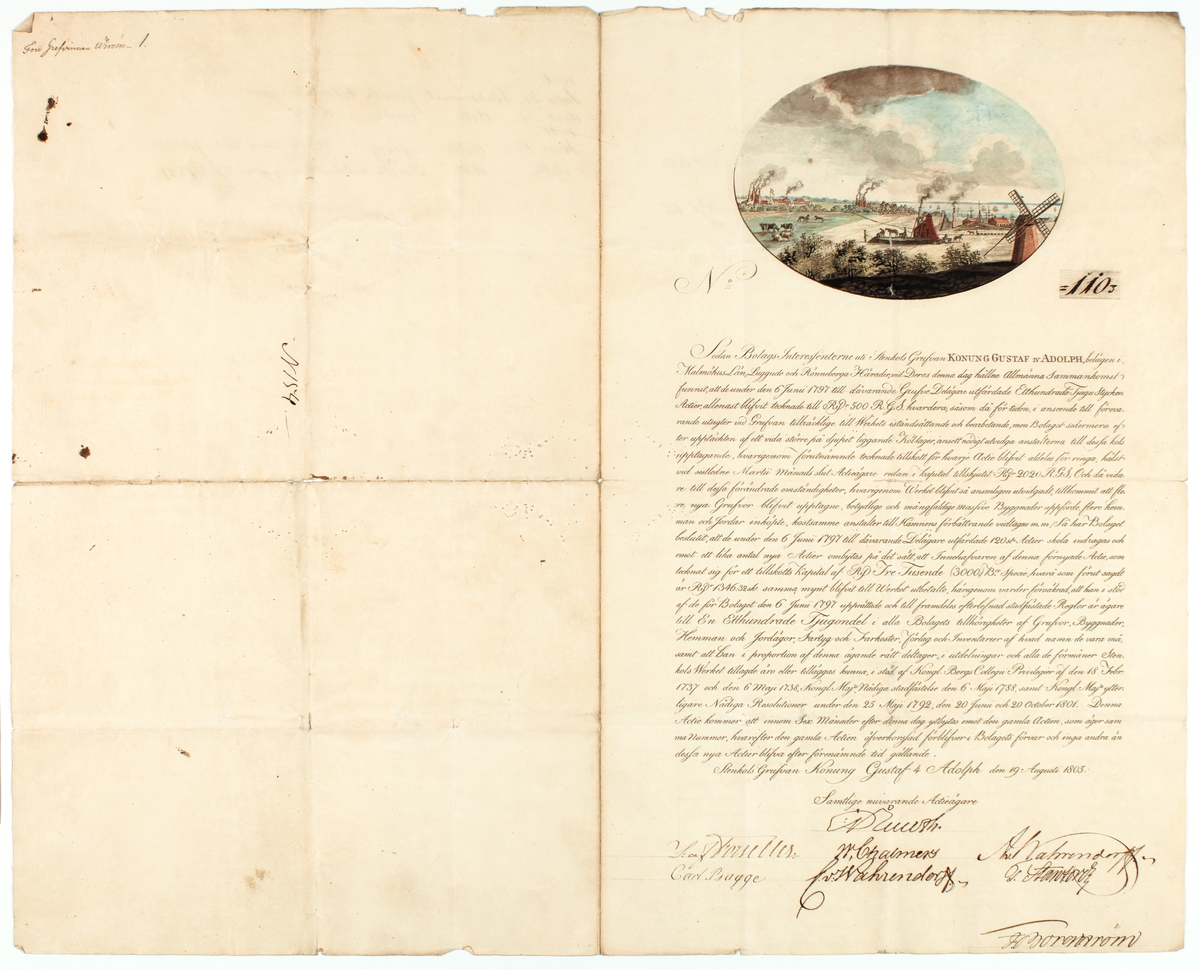 Fru Grefvinnan Wirsén 1.
N:o
=110=
Sedan Bolags Interessenterne uti Stenkols Grufvan KONUNG GUSTAF IV ADOLPH, belägen i
Malmöhus Län, Luggude och Rönneberga Härader, vid Deras denna dag hållne Allmänna Sammankomst
funnit, att de under den 6 Junii 1797 till dåvarande Grufve Delägare utfärdade Etthundrade Tjugu Stycken
Actier, allenast blifvit tecknade till Rdr 500 R.G.S. hvardera, såsom då för tiden, i anseende till förva-
rande utsigter vid Grufvan tillräcklige till Werkets iståndsättande och bearbetande, men Bolaget sedermera ef-
ter upptäckten af ett vida större på djupet liggande Kollager, ansett nödigt utvidga anstalterna till dessa kols
upptagande, hvarigenom förutnämnde tecknade tillskott för hvarje Actie blifvit aldeles för ringa, hälst
vid sistledne Martii Månads slut Actieägare redan i kapital tillskjutit Rdr 2020 R.G.S. Och då vida-
re till dessa förändrade omständigheter, hvarigenom Werket blifvit så ansenligen utvidgadt, tillkommit att fle-
re nya Grufvor blifvit upptagne, betydlige och mångfaldige massive Byggnader uppförde, flere hem-
man och Jordar inköpte, kostsamme anstalter till Hamnens förbättrande vidtagne m.m; Så har Bolaget
beslutit, att de under den 6 Junii 1797 till dåvarande Delägare utfärdade 120 st. Actier skola indragas och
emot ett lika antal nya Actier ombytas på det sätt, att Innehafvaren af denna förnyade Actie, som
tecknat sig för ett tillskotts Kapital af Rdr Tre Tusende (3000) B:co Specie, hvaraf som förut sagdt
är Rdr 1346.32 sk. samma mynt blifvit till Werket utbetalte, härigenom varder försäkrad, att han i stöd
af de för Bolaget den 6 Junii 1797 upprättade och till framdeles efterlefnad stadfästade Reglor är ägare
till En Etthundrade Tjugondel i alla Bolagets tillhörigheter af Grufvor, Byggnader,
Hemman och Jordägor, Fartyg och Farkoster, Förlag och Inventarier af hvad namn de vara må,
samt att Han i proportion af denna ägande rätt deltager i utdelningar och alla de förmåner Sten-
kols Werket tillagde äro eller tilläggas kunna, i stöd af Kongl. Bergs Collegii Privilegier af den 18 Febr.
1737 och den 6 Maji 1738, Kongl. Maj:ts Nådiga stadfästelse den 6 Maji 1788, samt Kongl. Maj:ts ytter-
ligare Nådiga Resolutioner under den 25 Maji 1792, den 20 Junii och 20 October 1801. Denna
Actie kommer att innom Sex Månader efter denna dag utbytas emot den gamla Actien, som äger sam-
ma Nummer, hvarefter den gamla Actien öfverkorssad förblifver i Bolagets förvar och inga andra än
dessa nya Actier blifva efter förenämnde tid gällande.
Stenkols Grufvan Konung Gustaf 4 Adolph den 19 Augusti 1805.
Samtlige nuvarande Actieägare
W, Chalmers
Carl Bagge
C v: Wahrendorff